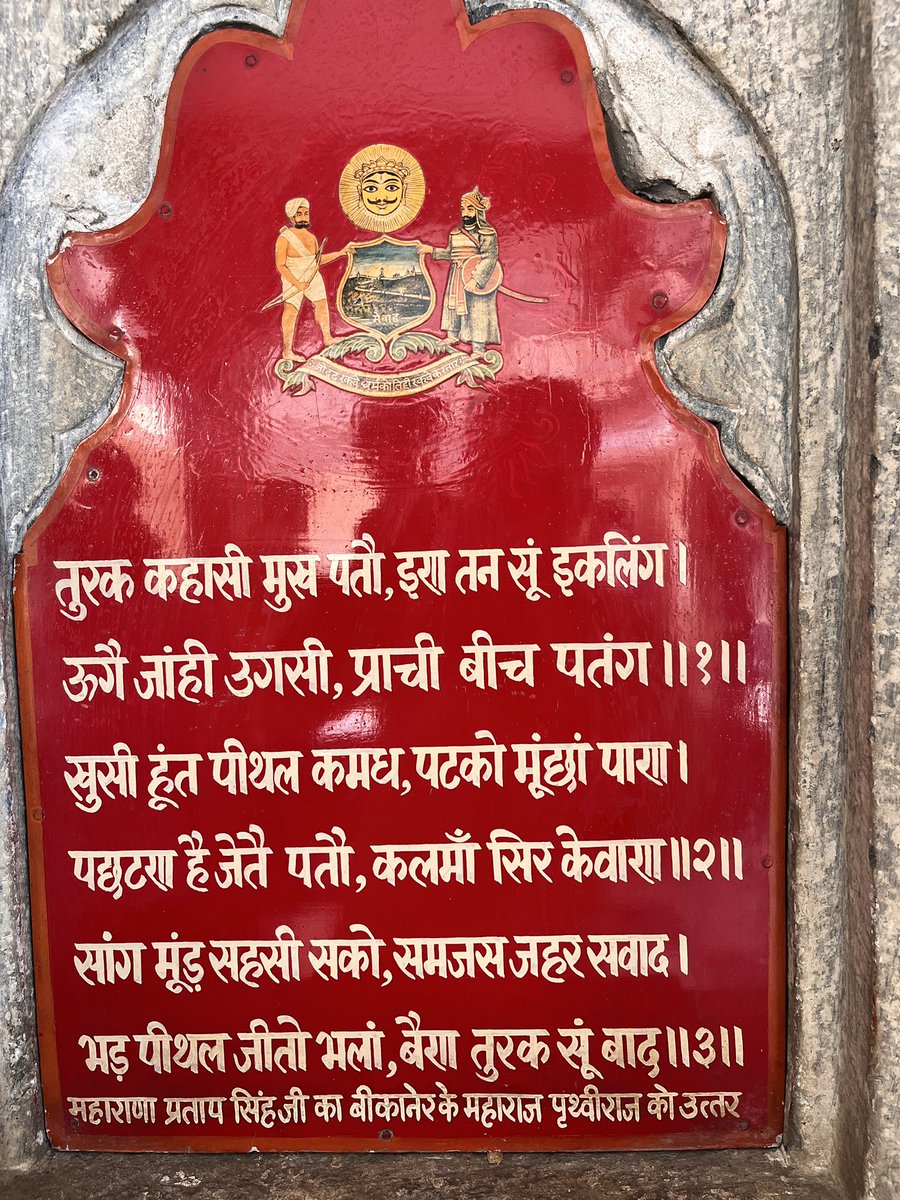 मेवाड़
तुरक कहासी मुख पतौ, इण तन सूं इकलिंग।
ऊगै जांही उगसी, प्राची बीच पतंग॥१॥
खुसी हूंत पीथल कमध, पटको मूंछां पाण।
पछटण है जेतै पतौ, कलमाँ सिर केवाण॥२॥
सांग मूंड़ सहसी सको, समजस जहर सवाद।
भड़ पीथल जीतो भलां, बैण तुरक सूं बाद॥३॥
महाराणा प्रताप सिंहजी का बीकानेर के महाराज पृथ्वीराज को उत्तर